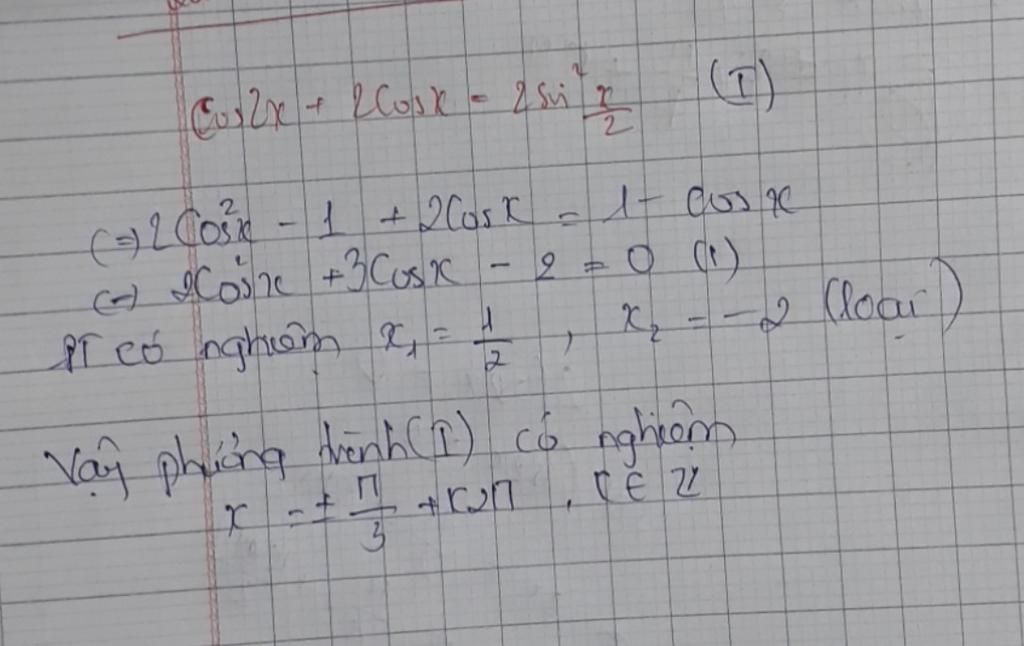 cos2x + 2cosx = 2sin² x/2 (I)
(=) 2cos²x - 1 + 2cosx = 1 - cosx
(=) 2cos²x + 3cosx - 2 = 0 (1)
PT có nghiệm x₁ = 1/2 , x₂ = -2 (loại)
Vậy phương trình (I) có nghiệm
x = ± π/3 + k2π , k ∈ Z